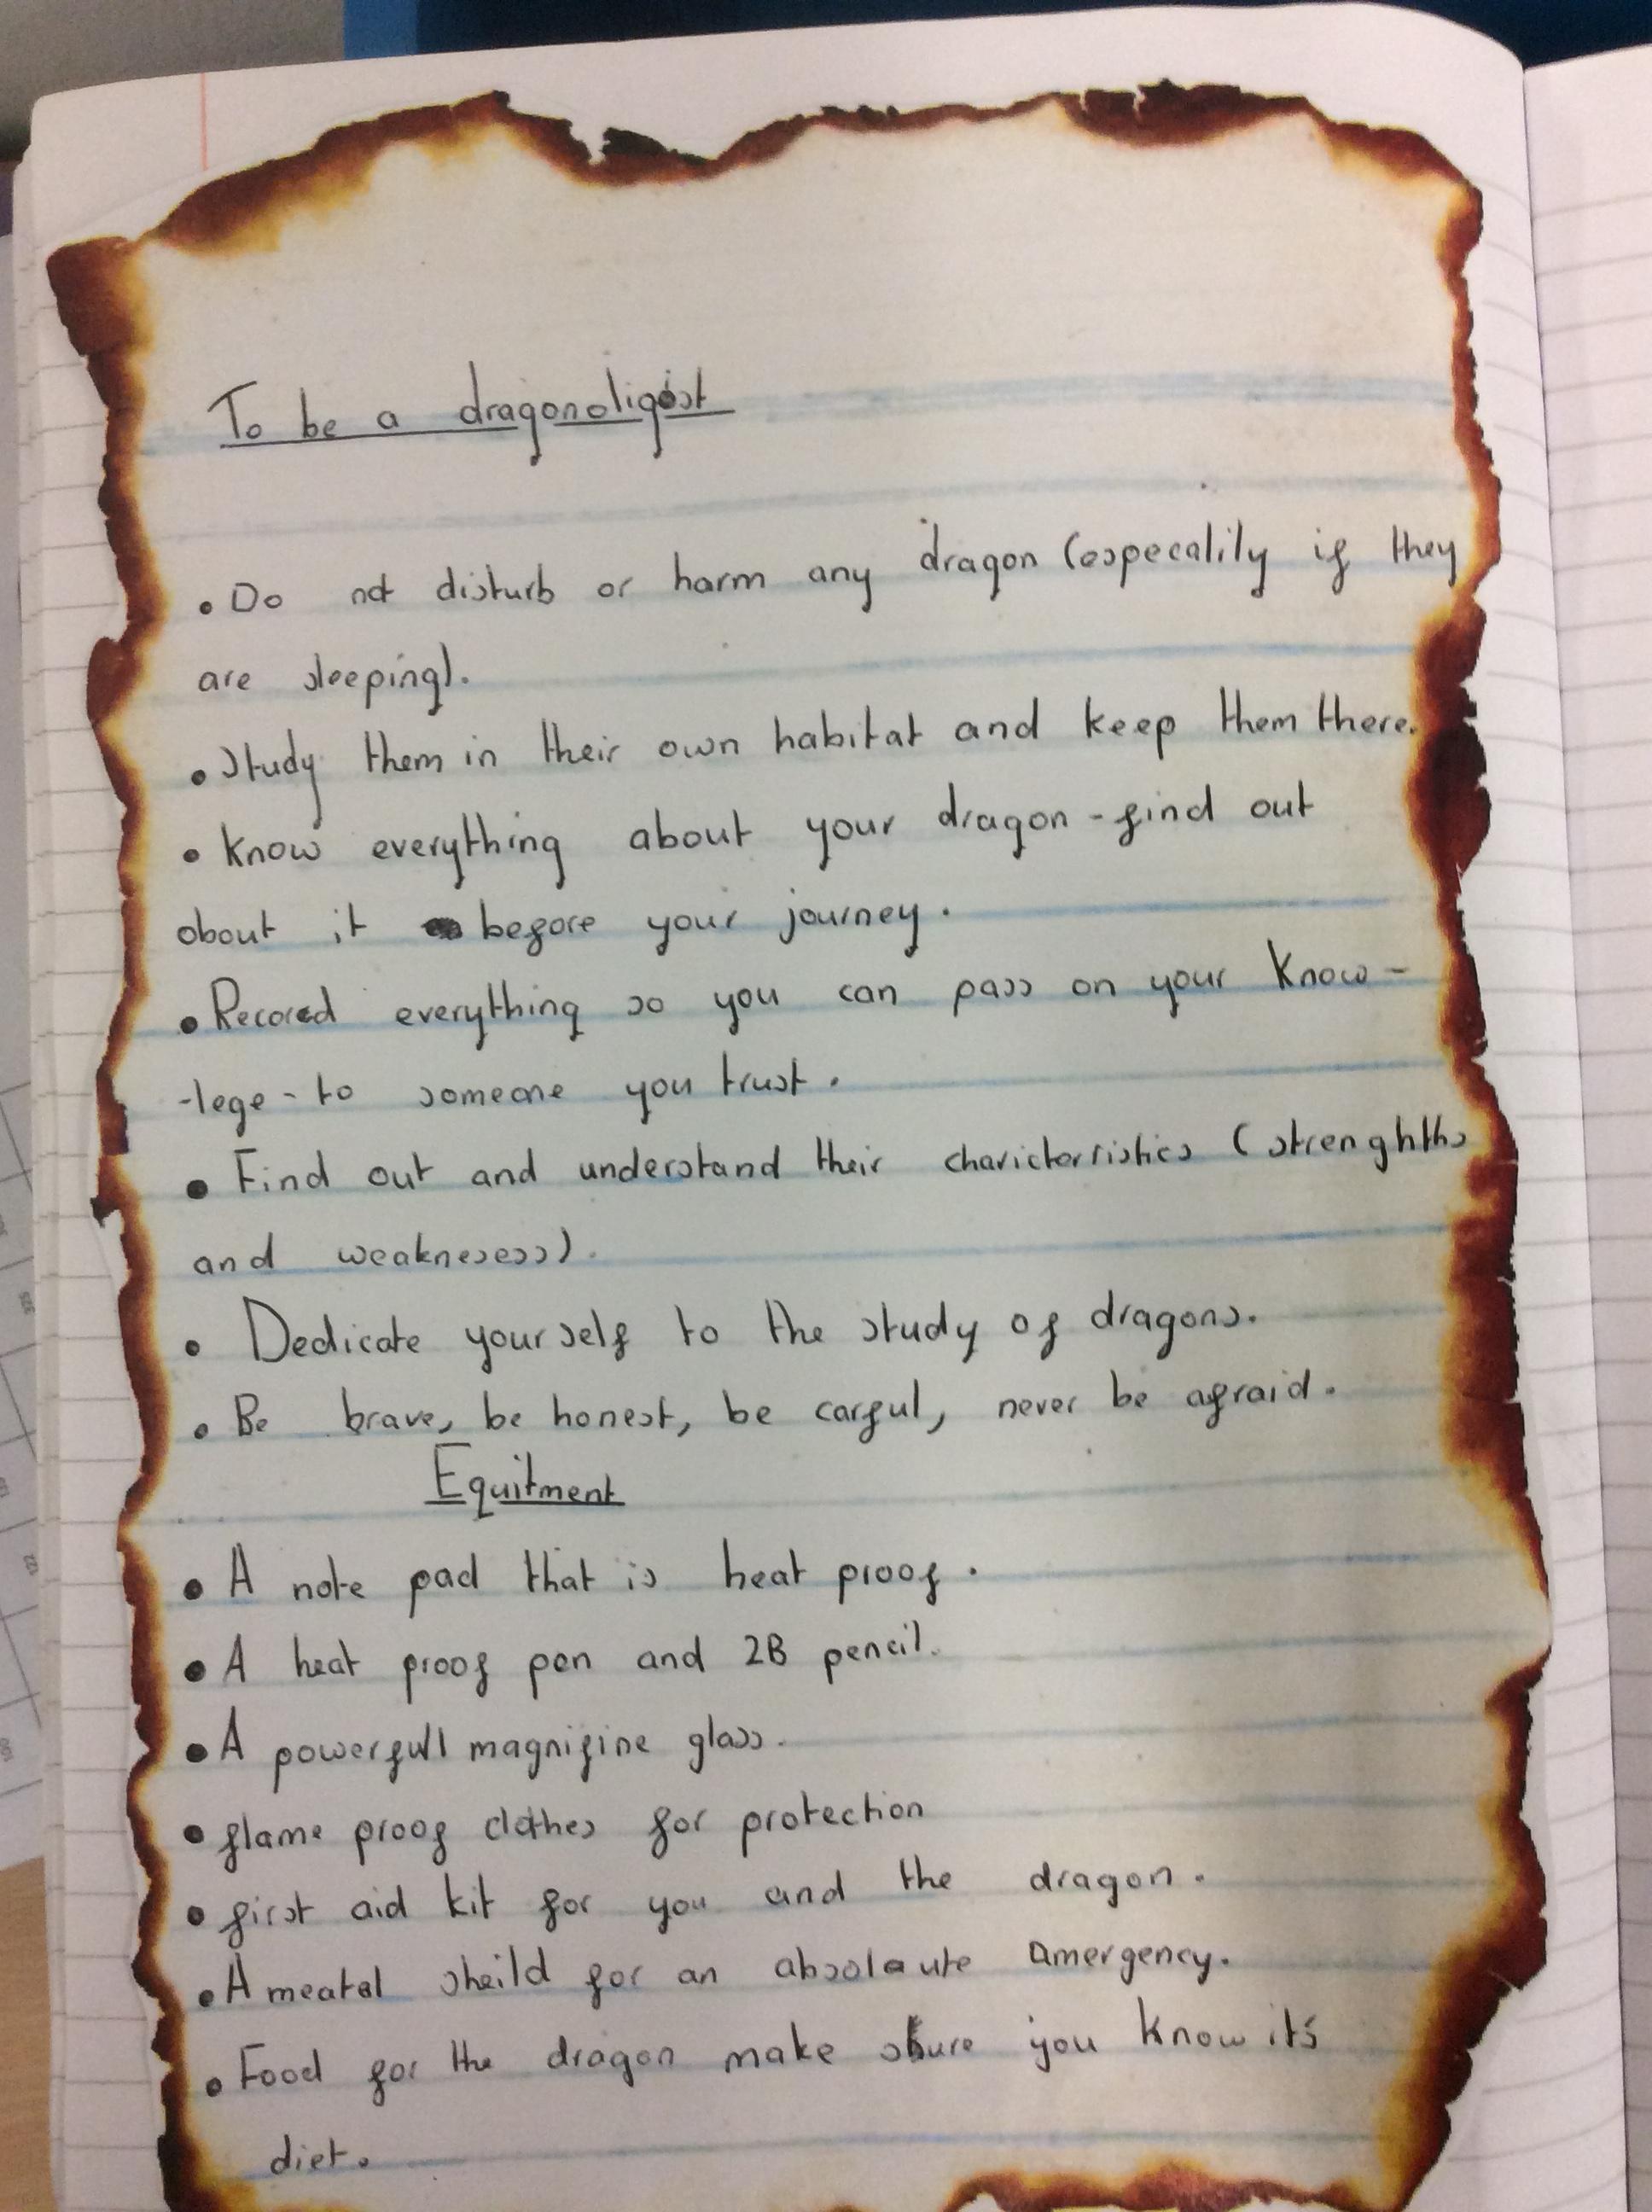 To be a dragonoligist
• Do not disturb or harm any dragon (especalily if they
are sleeping).
• Study them in their own habitat and keep them there.
• Know everything about your dragon - find out
about it before your journey.
• Recored everything so you can pass on your know-
-lege - to someone you trust.
• Find out and understand their charicterristics (strenghths
and weaknesess).
• Dedicate yourself to the study of dragons.
• Be brave, be honest, be carful, never be afraid.
Equitment
• A note pad that is heat proof.
• A heat proof pen and 2B pencil.
• A powerfull magnifine glass.
• flame proof clothes for protection
• first aid kit for you and the dragon.
• A meatal sheild for an absolaute amergency.
• Food for the dragon make shure you know it's
diet.